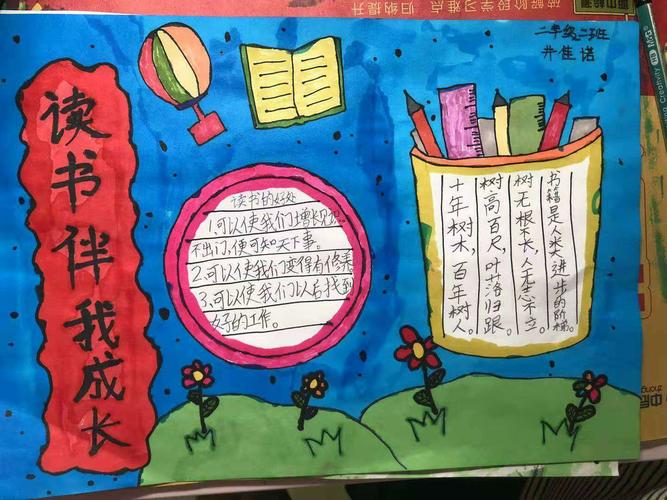 破解阶段学习难点 归纳提升
二年级二班
井佳诺
读书伴我成长
读书的好处
1.可以使我们增长见识
不出门,便可知天下事。
2.可以使我们变得有修养
3.可以使我们以后找到
好的工作。
书籍是人类进步的阶梯。
树无根不长,人无志不立。
树高百尺,叶落归跟。
十年树木,百年树人。